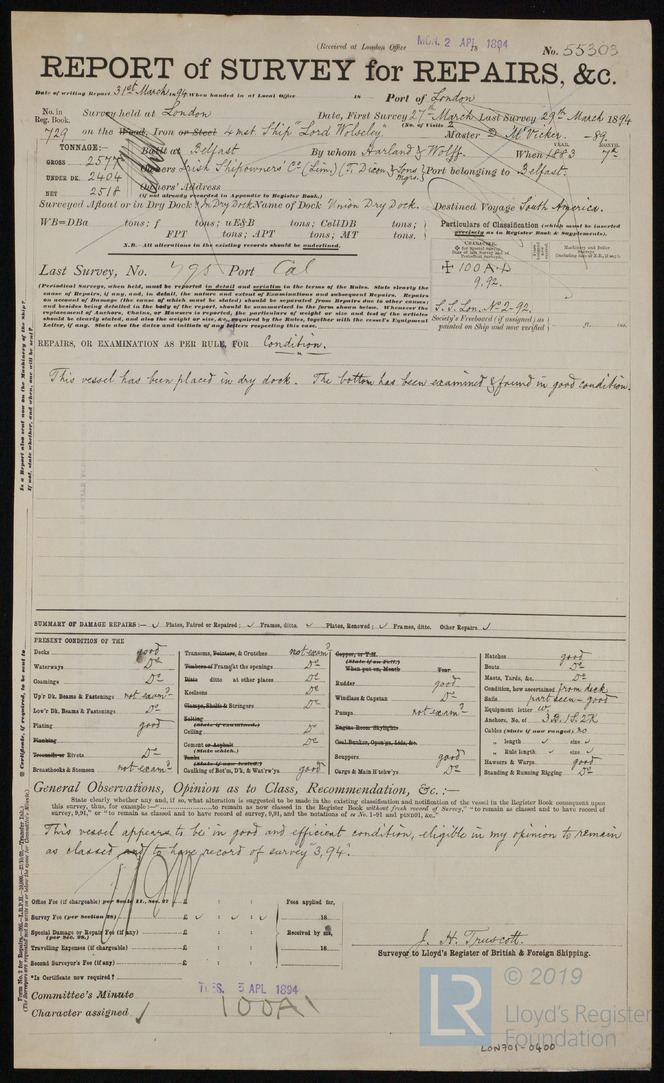 (Received at London Office MON. 2 APL 1894 18
No. 55303
REPORT of SURVEY for REPAIRS, &c.
Date of writing Report 31st March 1894. When handed in at Local Office 18 Port of London
No. in Reg. Book. Survey held at London Date, First Survey 27th March Last Survey 29th March 1894
(No. of Visits 2
729 on the Wood, Iron or Steel 4 mst Ship "Lord Wolseley" Master D. McVicker. -89
TONNAGE:— Built at Belfast By whom Harland & Wolff. When 1883 YEAR. MONTH. 7
GROSS 2577 Owners Irish Shipowners' Co (Lim) (T. Dixon & Sons Mgrs.) Port belonging to Belfast.
UNDER DK. 2404 Owners' Address
NET 2518 (If not already recorded in Appendix to Register Book.)
Surveyed Afloat or in Dry Dock? In Dry Dock Name of Dock Union Dry Dock. Destined Voyage South America.
WB=DBa tons; f tons; uE&B tons; CellDB tons;
FPT tons; APT tons; MT tons.
N.B.—All alterations in the existing records should be underlined.
Particulars of Classification (which must be inserted precisely as in Register Book & Supplements).
Last Survey, No. 795 Port Cal
+100A1
9.92.
S.S. Lon. No 2-92.
(Periodical Surveys, when held, must be reported in detail and seriatim in the terms of the Rules. State clearly the
cause of Repairs, if any, and, in detail, the nature and extent of Examinations and subsequent Repairs. Repairs
on account of Damage (the cause of which must be stated) should be separated from Repairs due to other causes;
and besides being detailed in the body of the report, should be summarised in the form shown below. Whenever the
replacement of Anchors, Chains, or Hawsers is reported, the particulars of weight or size and test of the articles
should be clearly stated, and also the weight or size, &c., required by the Rules, together with the vessel's Equipment
Letter, if any. State also the dates and initials of any letters respecting this case.
Society's Freeboard (if assigned) as
painted on Ship and now verified ft. ins.
REPAIRS, OR EXAMINATION AS PER RULE, FOR Condition.
This vessel has been placed in dry dock. The bottom has been examined & found in good condition.
SUMMARY OF DAMAGE REPAIRS:— Plates, Faired or Repaired; Frames, ditto. Plates, Renewed; Frames, ditto. Other Repairs
PRESENT CONDITION OF THE
Decks good
Waterways Do
Coamings Do
Up'r Dk. Beams & Fastenings not exam?
Low'r Dk. Beams & Fastenings Do
Plating good
Planking
Treenails or Rivets Do
Breasthooks & Stemson not exam?
Transoms, Pointers, & Crutches not exam?
Timbers of Frame at the openings Do
Ditto ditto at other places Do
Keelsons Do
Clamps, Shelfs & Stringers Do
Salting
(State if examined.)
Ceiling Do
Cement or Asphalt Do
(State which.)
Tanks
(State if now tested.)
Caulking of Bot'm, D'k, & Wat'rw'ys good
Copper, or Y.M.
(State if on Felt.)
When put on, Month Year
Rudder good
Windlass & Capstan Do
Pumps not exam?
Engine Room Skylights
Coal Bunker, Open'gs, Lids, &c.
Scuppers good
Cargo & Main H'tchw'ys Do
Hatches good
Boats Do
Masts, Yards, &c. Do
Condition, how ascertained from deck
Sails part seen - good
Equipment letter w
Anchors, No. of 3B. 1S. 2K
Cables (State if now ranged) no
,, length size
,, Rule length size
Hawsers & Warps good
Standing & Running Rigging Do
General Observations, Opinion as to Class, Recommendation, &c. :—
State clearly whether any and, if so, what alteration is suggested to be made in the existing classification and notification of the vessel in the Register Book consequent upon
this survey, thus, for example:— "to remain as now classed in Register Book without fresh record of Survey," or "to remain as classed and to have record of
survey, 9,91," or "to remain as classed and to have record of survey, 9,91, and the notations of
This vessel appears to be in good and efficient condition, eligible in my opinion to remain
as classed and to have record of survey "3,94".
Office Fee (if chargeable) per Scale II., Sec. 27 £ : : Fees applied for,
Survey Fee (per Section 28) £ : : 18
Special Damage or Repair Fee (if any) £ : : Received by me,
(per Sec. 28.)
Travelling Expenses (if chargeable) £ : : 18
Second Surveyor's Fee (if any) £ : :
*Is Certificate now required?
J. H. Truscott.
Surveyor to Lloyd's Register of British & Foreign Shipping.
Committee's Minute TUES. 3 APL 1894
Character assigned 100A1
LR © 2019
Lloyd's Register
Foundation
LON705-0400